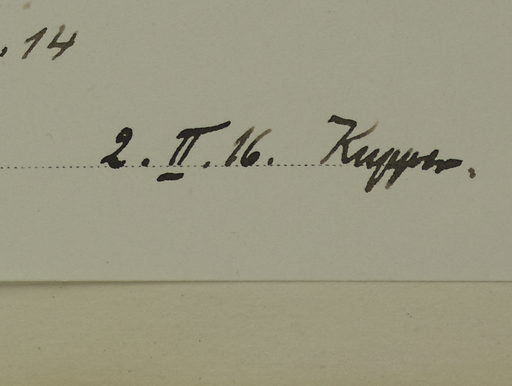 . 14
2. II. 16. Kupper.